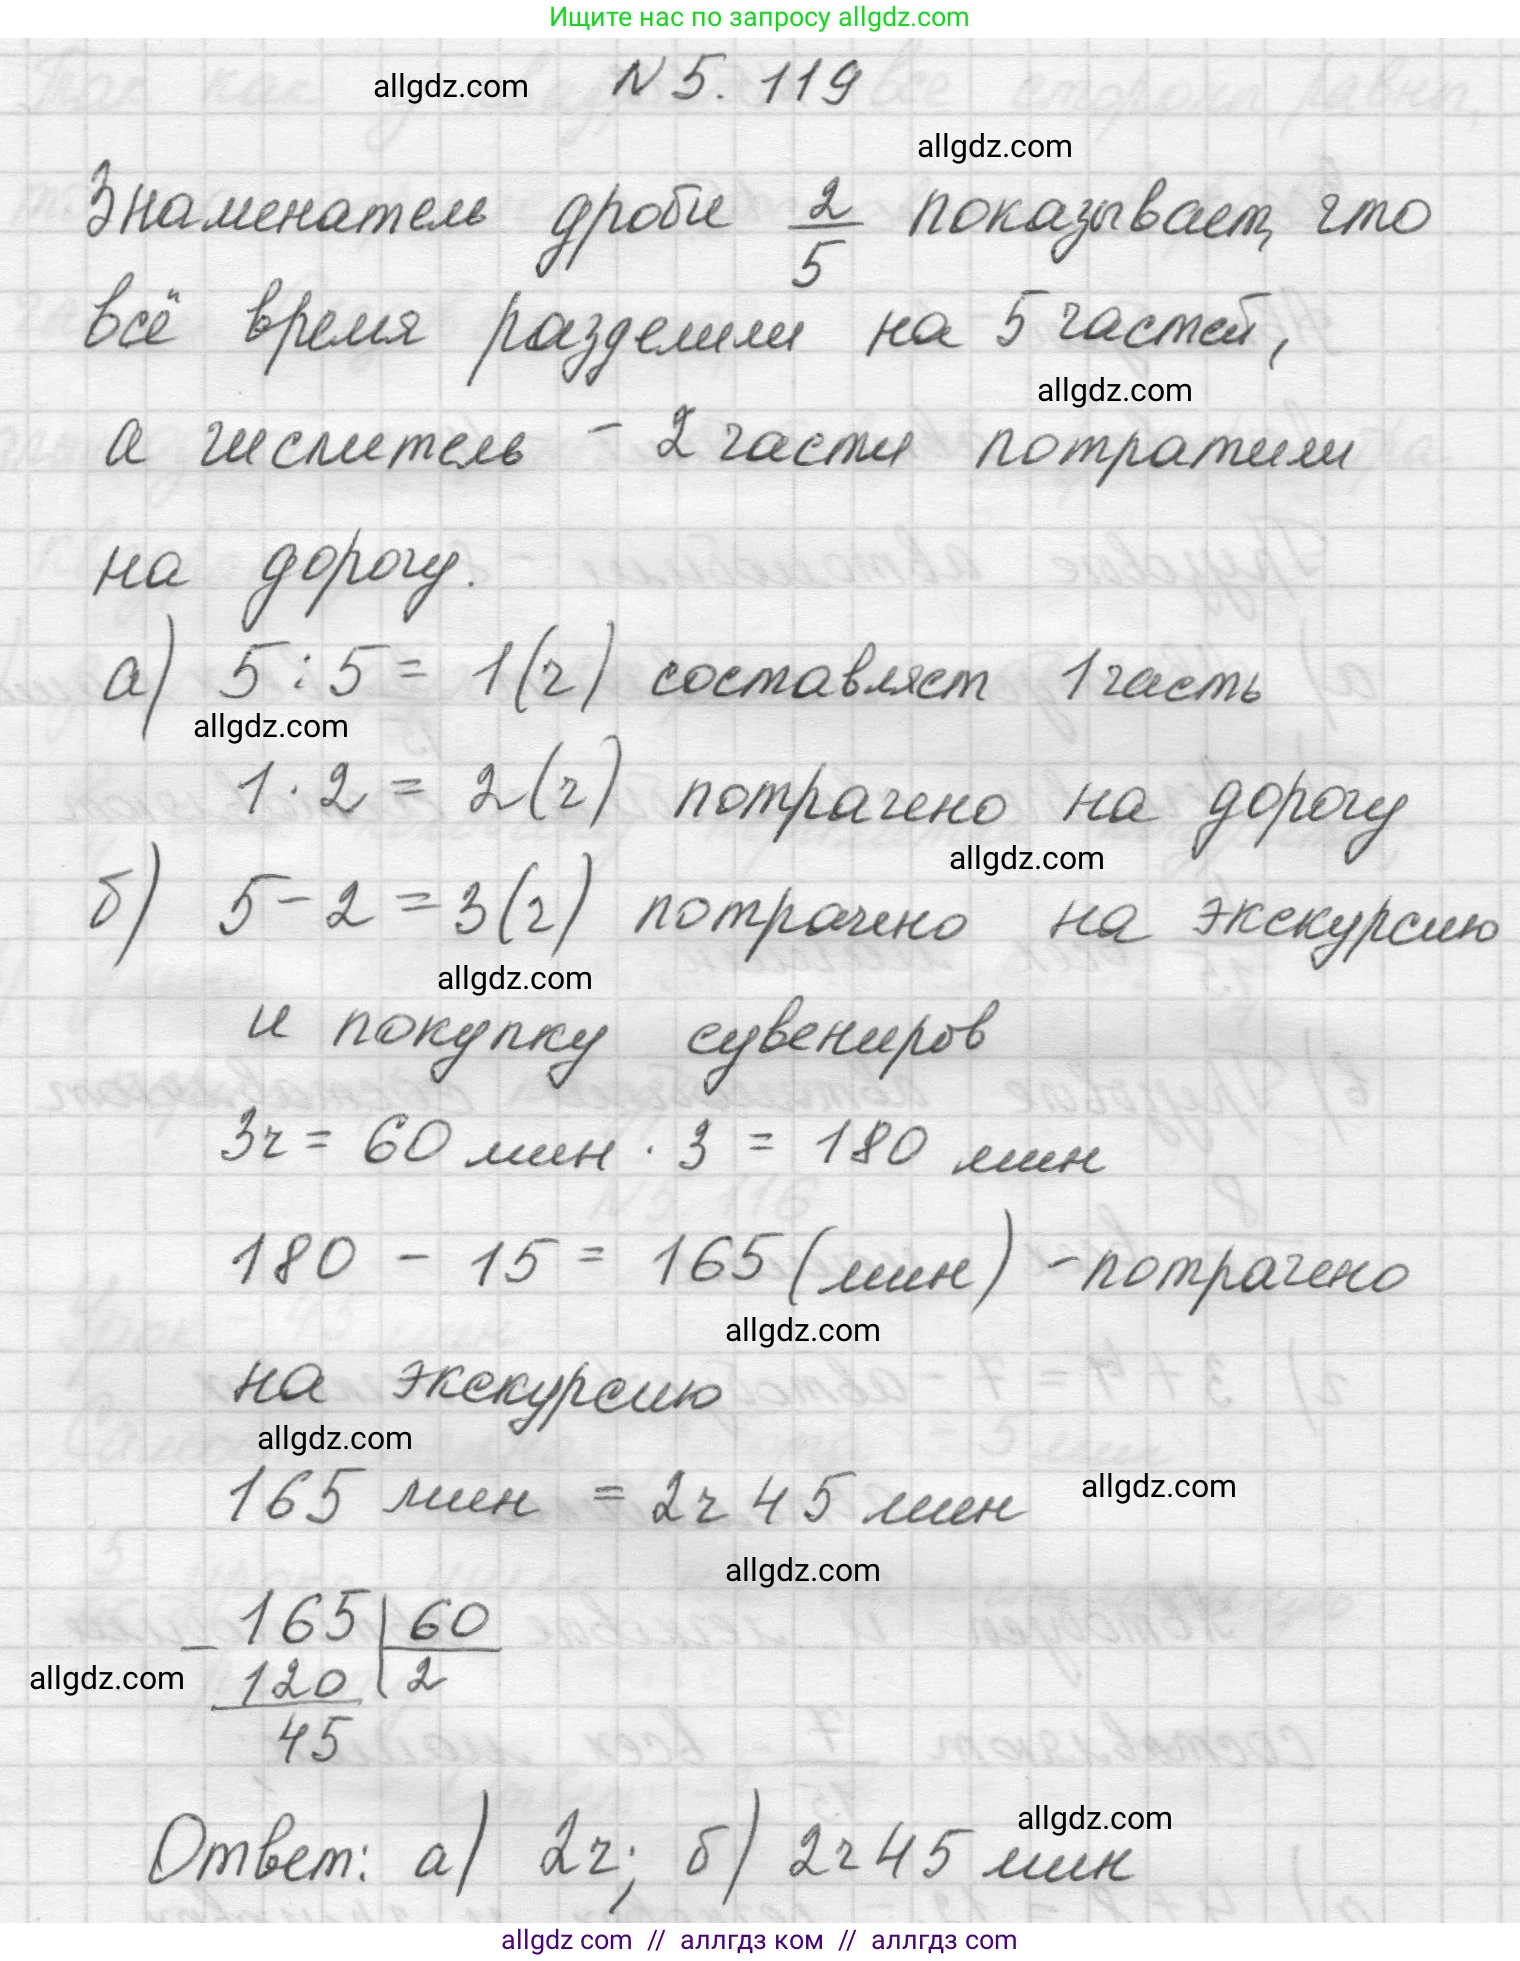 Ищите нас по запросу allgdz.com
allgdz.com N 5. 119
allgdz.com
Знаменатель дроби 2/5 показывает, что
всё время разделили на 5 частей,
allgdz.com
а числитель - 2 части потратили
на дорогу.
а) 5 : 5 = 1 (ч) составляет 1 часть
allgdz.com
1 · 2 = 2 (ч) потрачено на дорогу
allgdz.com
б) 5 - 2 = 3 (ч) потрачено на экскурсию
allgdz.com
и покупку сувениров
3ч = 60 мин · 3 = 180 мин
180 - 15 = 165 (мин) - потрачено
allgdz.com
на экскурсию
allgdz.com
165 мин = 2ч 45 мин
allgdz.com
allgdz.com
- 165 | 60
allgdz.com 120 | 2
45
allgdz.com
Ответ: а) 2ч; б) 2ч 45 мин
allgdz com // аллгдз ком // аллгдз com